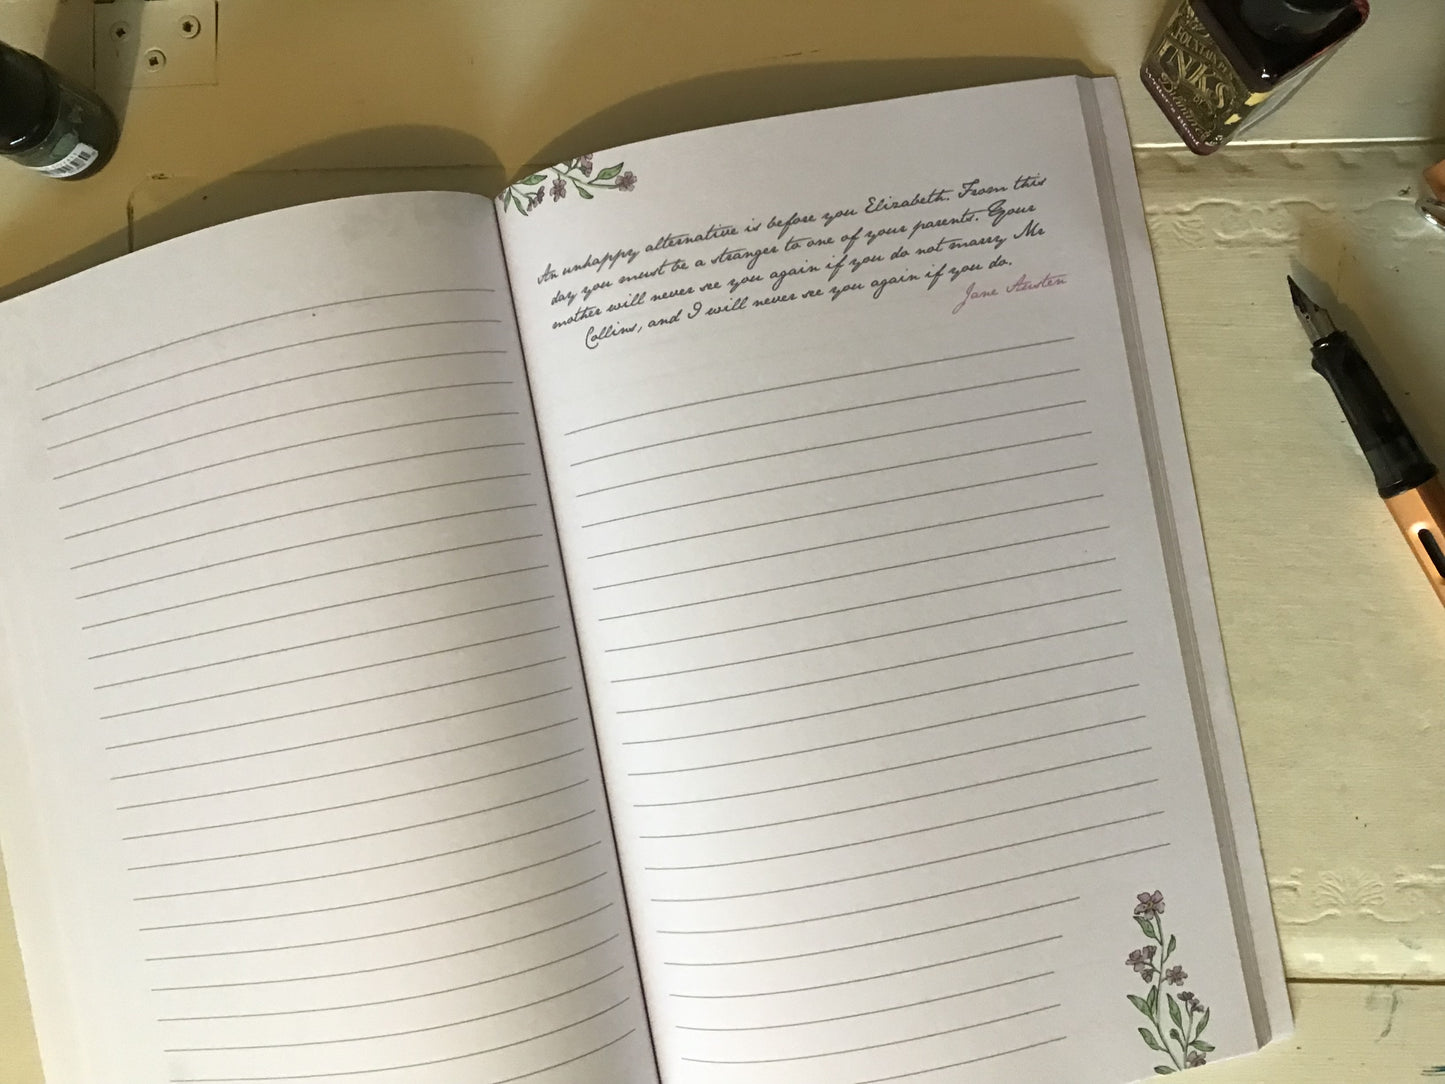 FOUNTAIN PEN
INKS
Diamine
An unhappy alternative is before you Elizabeth. From this
day you must be a stranger to one of your parents. Your
mother will never see you again if you do not marry Mr
Collins, and I will never see you again if you do.
Jane Austen